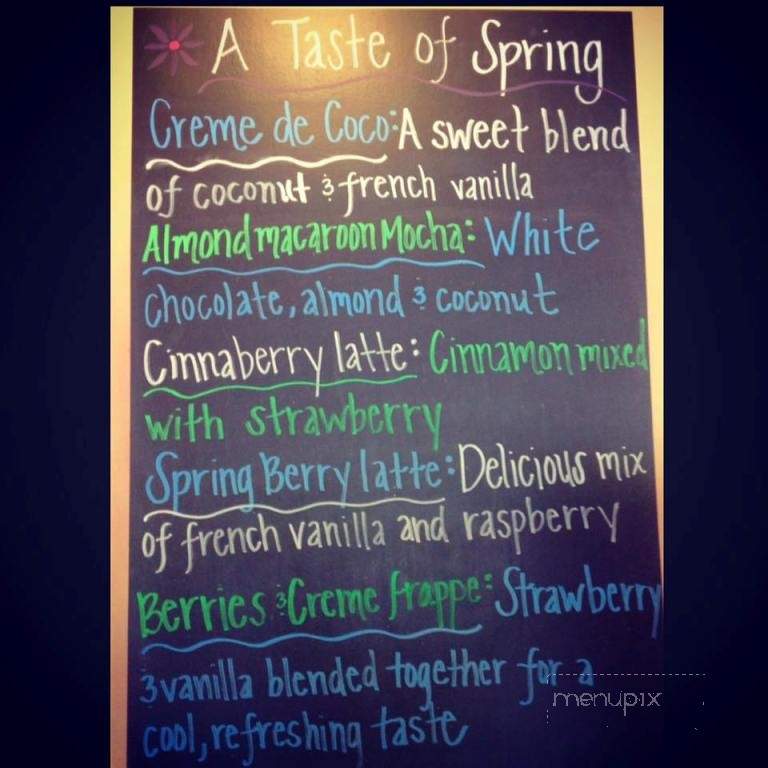 A Taste of Spring
Creme de Coco: A sweet blend
of coconut & french vanilla
Almond macaroon Mocha: White
chocolate, almond & coconut
Cinnaberry latte: Cinnamon mixed
with strawberry
Spring Berry latte: Delicious mix
of french vanilla and raspberry
Berries & Creme frappe: Strawberry
& vanilla blended together for a
menupix
cool, refreshing taste